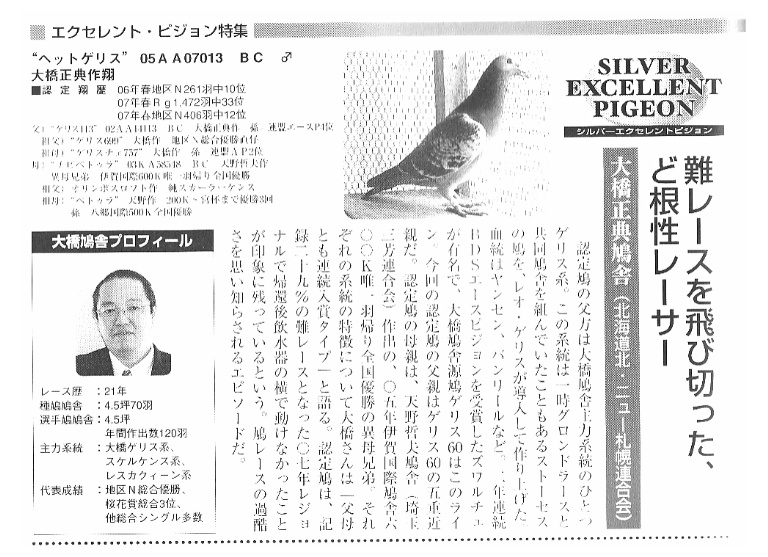 エクセレント・ピジョン特集
"ヘットゲリス" 05AA07013 BC ♂
大橋正典作翔
■認定翔歴 06年春地区N261羽中10位
07年春Rg1,472羽中33位
07年春地区N406羽中12位
父:"ゲリス113" 02AA14113 BC 大橋正典作 孫 連盟エースP1位
祖父:"ゲリス699" 大橋作 地区N総合優勝直仔
祖母:"ゲリスチェ757" 大橋作 孫 連盟AP2位
03KA58548 BC 天野哲夫作
異母兄弟 伊賀国際600K唯一羽帰り全国優勝
祖父:
祖母:"ヘットゥラ" 天野作 200K~宮杯まで優勝3回
孫 八郷国際500K全国優勝
SILVER
EXCELLENT
PIGEON
シルバーエクセレントピジョン
難レースを飛び切った、
ど根性レーサー
大橋正典鳩舎(北海道北・ニュー札幌連合会)
認定鳩の父方は大橋鳩舎主力系統のひとつ
ゲリス系。この系統は一時グロンドラースと
共同鳩舎を組んでいたこともあるストーセス
の鳩を、レオ・ゲリスが導入して作り上げた。
血統はヤンセン、バンリールなど。二年連続
BDSエースピジョンを受賞したズワルチェ
が有名で、大橋鳩舎源鳩ゲリス60はこのライ
ン。今回の認定鳩の父親はゲリス60の五重近
親だ。認定鳩の母親は、天野哲夫鳩舎(埼玉
三芳連合会)作出の、〇五年伊賀国際鳩舎六
〇〇K唯一羽帰り全国優勝の異母兄弟。それ
ぞれの系統の特徴について大橋さんは「父母
とも連続入賞タイプ」と語る。認定鳩は、記
録二十九%の難レースとなった〇七年レジョ
ナルで帰還後飲水器の横で動けなかったこと
が印象に残っているという。鳩レースの過酷
さを思い知らされるエピソードだ。
大橋鳩舎プロフィール
レース歴 :21年
種鳩鳩舎 :4.5坪70羽
選手鳩鳩舎:4.5坪
年間作出数120羽
主力系統 :大橋ゲリス系、
スケルケンス系、
レスカウィーン系
代表成績 :地区N総合優勝、
桜花賞総合3位、
他総合シングル多数